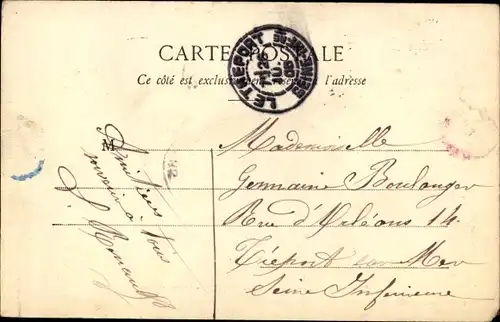 CARTE POSTALE
Ce côté est exclusivement réservé à l'adresse
LE TREPORT
SEINE-INFRE
M
Mademoiselle
Germaine Boulanger
Rue d'Orléans 14
Tréport sur Mer
Seine Inférieure
souvenir à tous